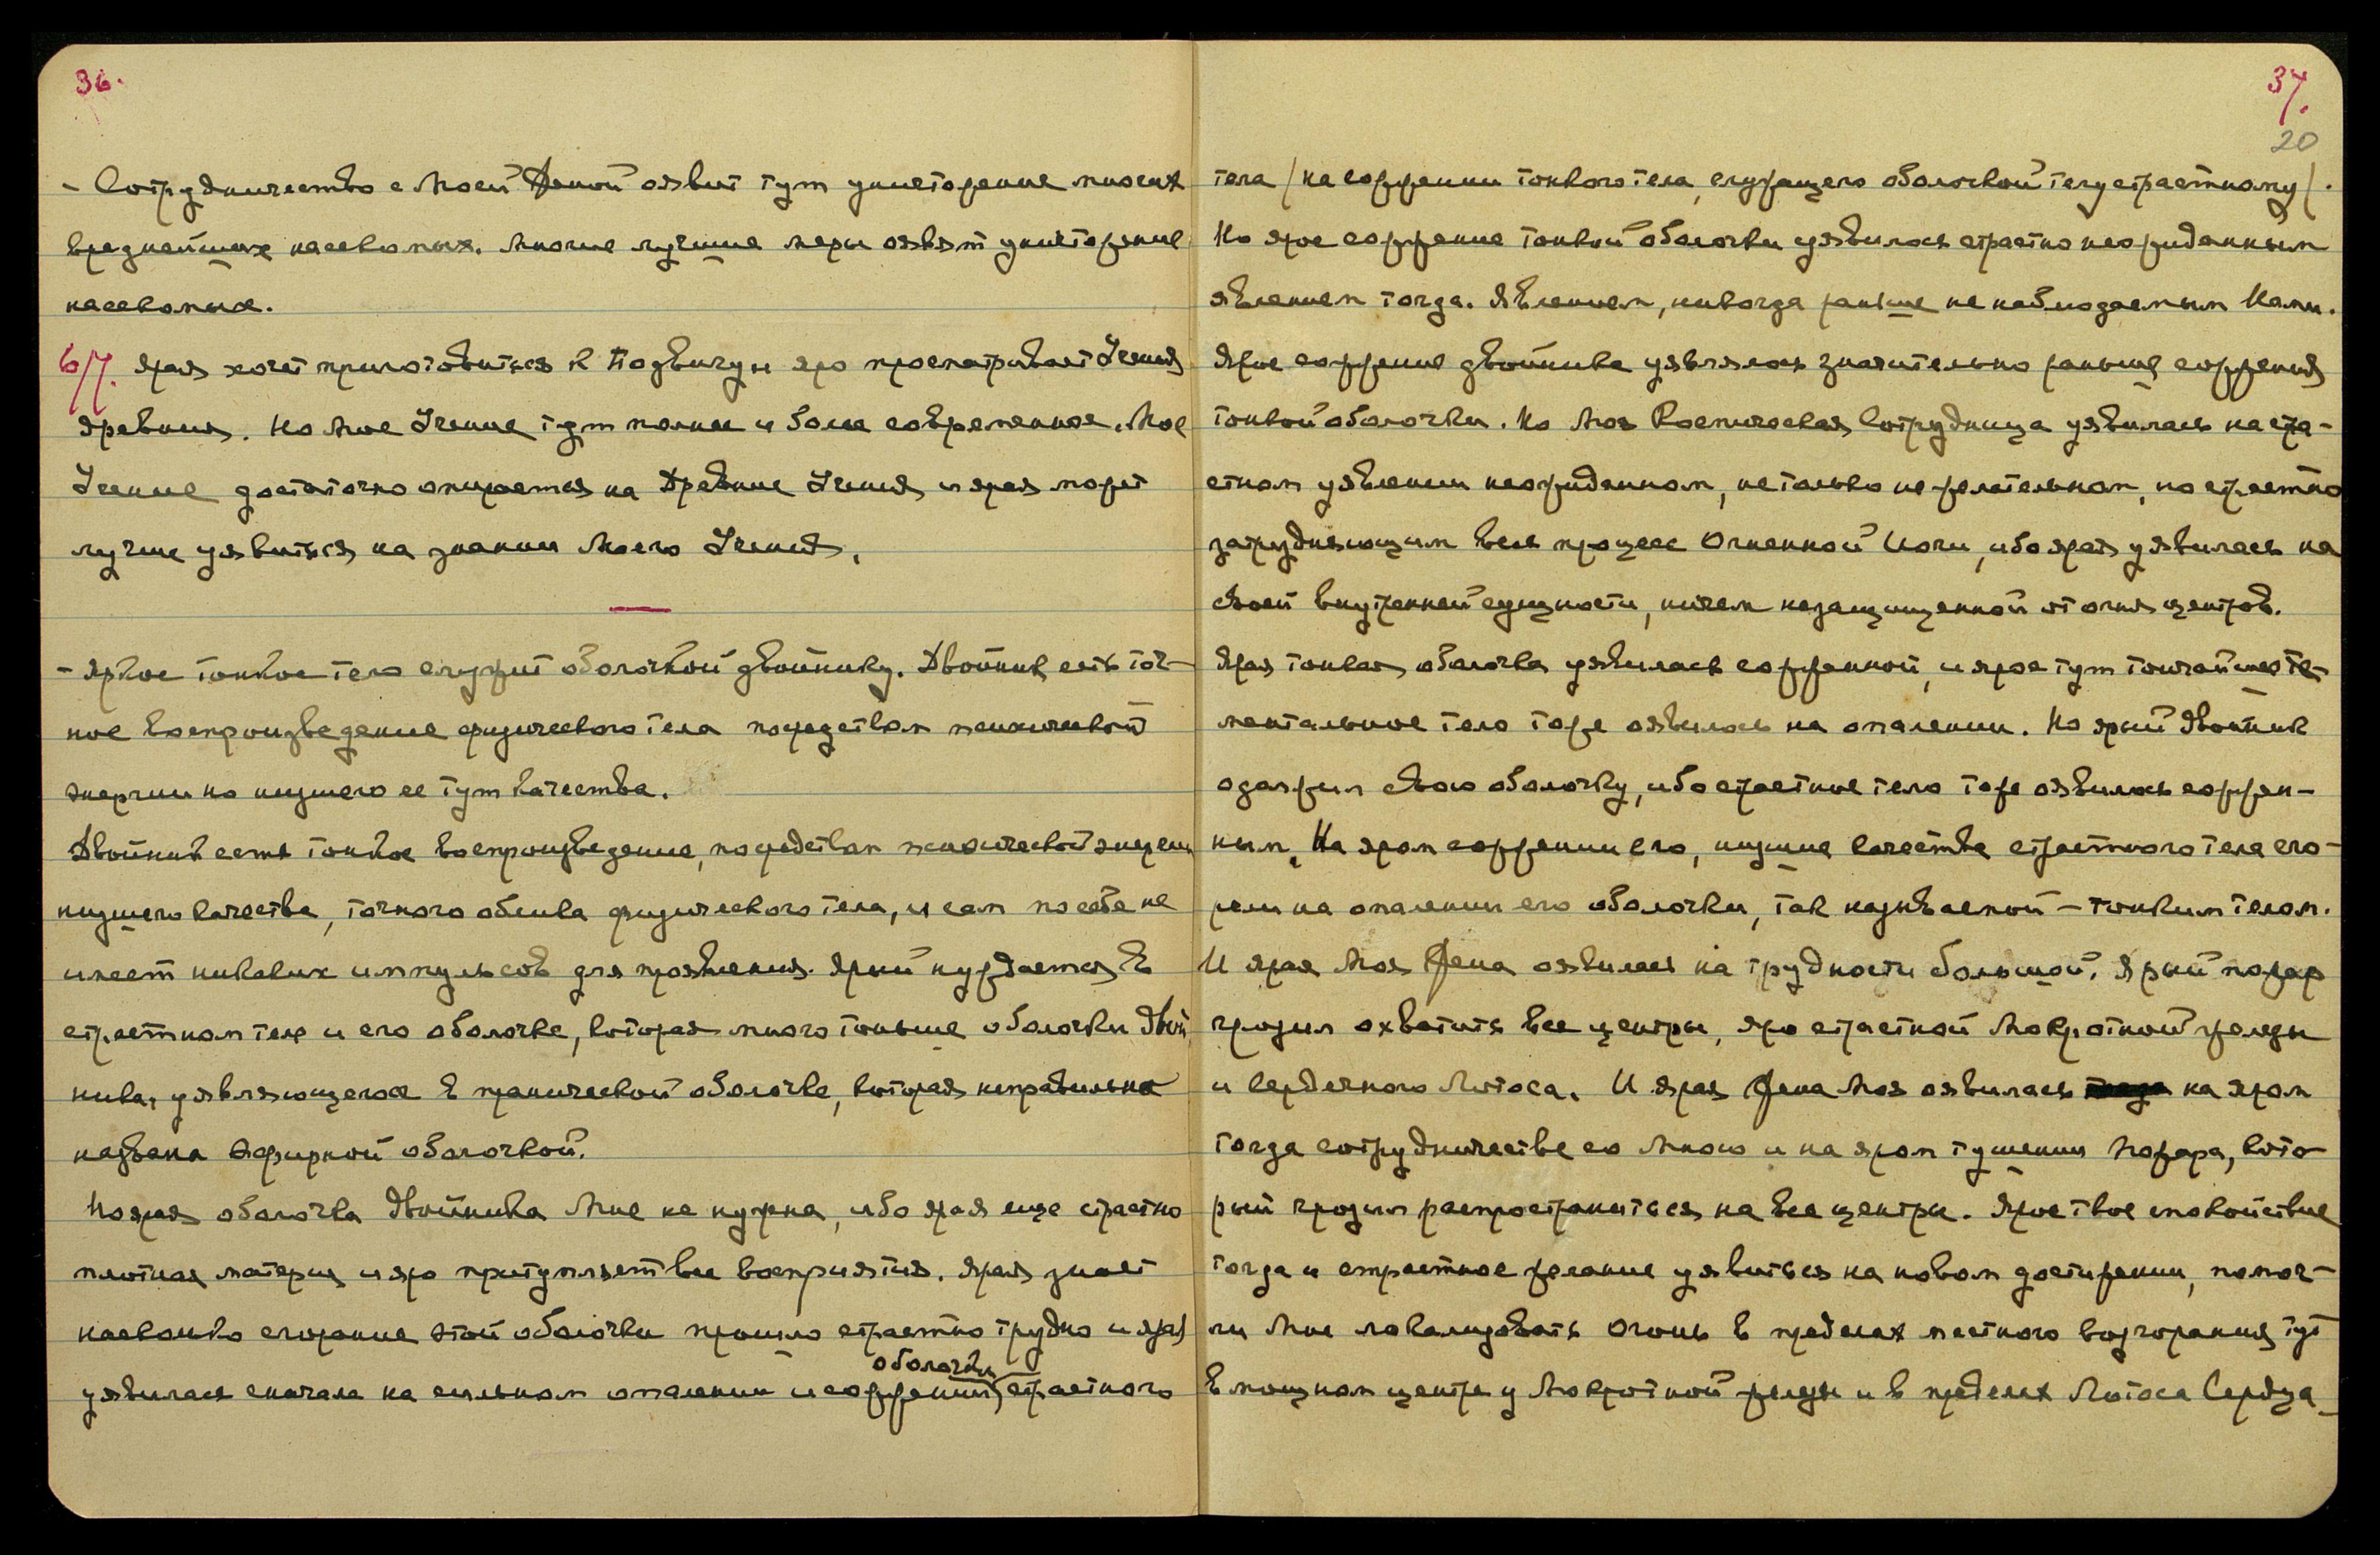 36.
- Сотрудничество с Моей Женой оявит тут уничтожение многих
вреднейших насекомых. Многие лучшие меры оявят уничтожение
насекомых.
6/7. Ярая хочет приготовиться к Подвигу и яро просматривает Учения
древния. Но Мое Учение тут полнее и более современное. Мое
Учение достаточно опирается на Древние Учения, и ярая может
лучше уявиться на знании Моего Учения.
- Яркое тонкое тело служит оболочкой двойнику. Двойник есть точ-
ное воспроизведение физического тела посредством психической
энергии но низшего ее тут качества.
Двойник есть тонкое воспроизведение, посредством психической энергии
низшего качества, точного облика физического тела, и сам по себе не
имеет никаких импульсов для проявления. Ярый нуждается в
страстном теле и его оболочке, которая много тоньше оболочки двой
ника, уявляющегося в пранической оболочке, которая неправильно
названа эфирной оболочкой.
Но ярая оболочка двойника Мне не нужна, ибо ярая еще страстно
плотная материя и яро притупляет все восприятия. Ярая знает
насколько сгорание этой оболочки прошло страстно трудно и ярая
оболочки
уявилась сначала на сильном опалении и сожжении страстного
37.
20
тела /на сожжении тонкого тела, служащего оболочкой телу страстному/.
Но ярое сожжение тонкой оболочки уявилось страстно неожиданным
явлением тогда. Явлением, никогда раньше не наблюдаемым Нами.
Ярое сожжение двойника уявлялось значительно раньше сожжения
тонкой оболочки. Но Моя Космическая Сотрудница уявилась на стра-
стном уявлении неожиданном, не только нежелательном, но страстно
затрудняющим весь процесс Огненной Йоги, ибо ярая уявилась на
своей внутренней сущности, ничем незащищенной от огня центров.
Ярая тонкая оболочка уявилась сожженной, и ярое тут тончайшее те-
ментальное тело тоже оявилось на опалении. Но ярый двойник
одолжил свою оболочку, ибо страстное тело тоже оявилось сожжен-
ным. На яром сожжении его, низшие качества страстного тела сго-
рели на опалении его оболочки, так называемой - тонким телом.
И ярая Моя Жена оявилась на трудности большой. Ярый пожар
грозил охватить все центры, яро страстной Мокротной железы
и Сердечного Лотоса. И ярая Жена Моя оявилась на яром
тогда сотрудничестве со Мною и на яром тушении Пожара, кото-
рый грозил распространиться на все центры. Ярое твое спокойствие
тогда и страстное желание уявиться на новом достижении, помог-
ли Мне локализовать Огонь в пределах местного возгорания тут
в мощном центре у Мокротной железы и в пределах Лотоса Сердца_